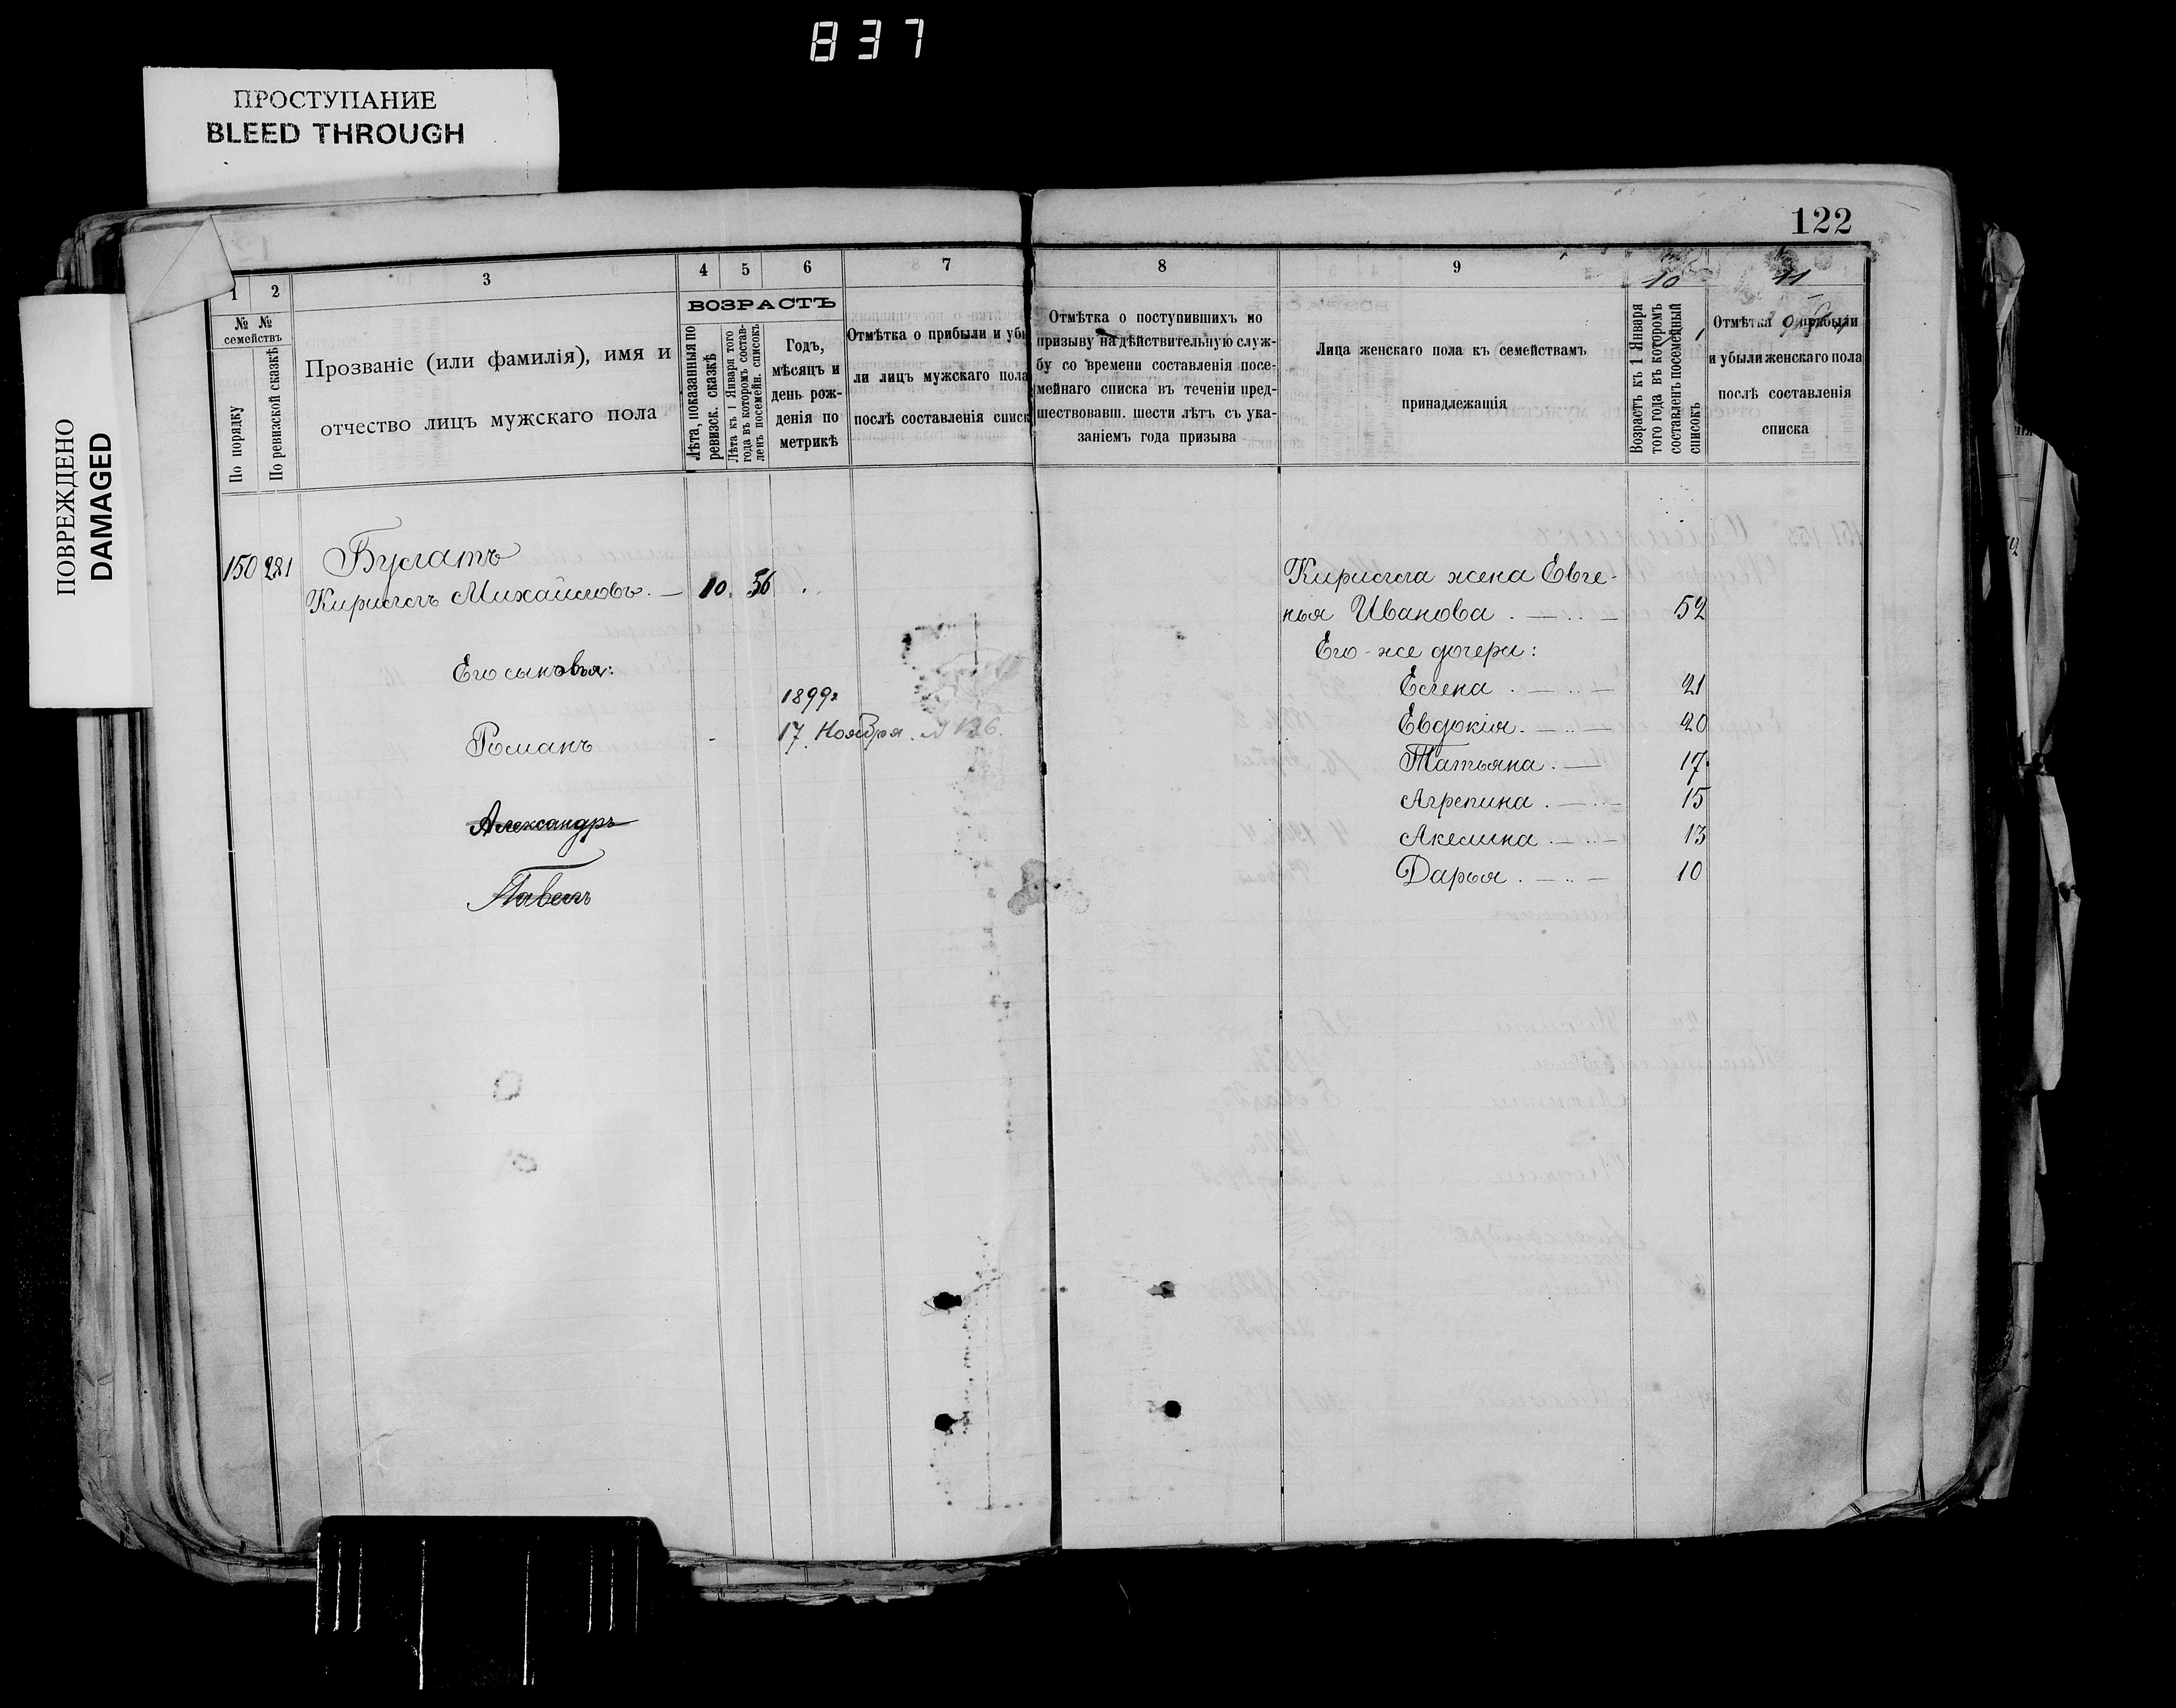 837
ПРОСТУПАНИЕ
BLEED THROUGH
ПОВРЕЖДЕНО
DAMAGED
122
1 2 3 4 5 6 7 8 9 10 11
№ № семействъ
По порядку
По ревизской сказкѣ
Прозваніе (или фамилія), имя и
отчество лицъ мужскаго пола
ВОЗРАСТЪ
Лѣта, показанныя по
ревизск. сказкѣ
Лѣта къ 1 Января того
года въ которомъ состав-
ленъ посемейн. списокъ
Годъ,
мѣсяцъ и
день рож-
денія по
метрикѣ
Отмѣтка о прибыли и убы
ли лицъ мужскаго пола
послѣ составленія списк
Отмѣтка о поступившихъ по
призыву на дѣйствительную служ-
бу со времени составленія посе-
мейнаго списка въ теченіи пред-
шествовавш. шести лѣтъ съ ука-
заніемъ года призыва
Лица женскаго пола къ семействамъ
принадлежащія
Возрастъ къ 1 Января
того года въ которомъ
составленъ посемейный
списокъ
Отмѣтка о прибыли
и убыли женскаго пола
послѣ составленія
списка
150 221 Буглатъ
Кириллъ Михайловъ. — 10. 56
Его сыновья:
1899г
Романъ - 17. Ноября.
Александръ
Павелъ
Кирилла жена Евге-
нья Иванова . — 52
Его-же дочери:
Елена . — 21
Евдокія . — 20
Татьяна . — 17
Агрепина . — 15
Акелина . — 13
Дарья . — 10